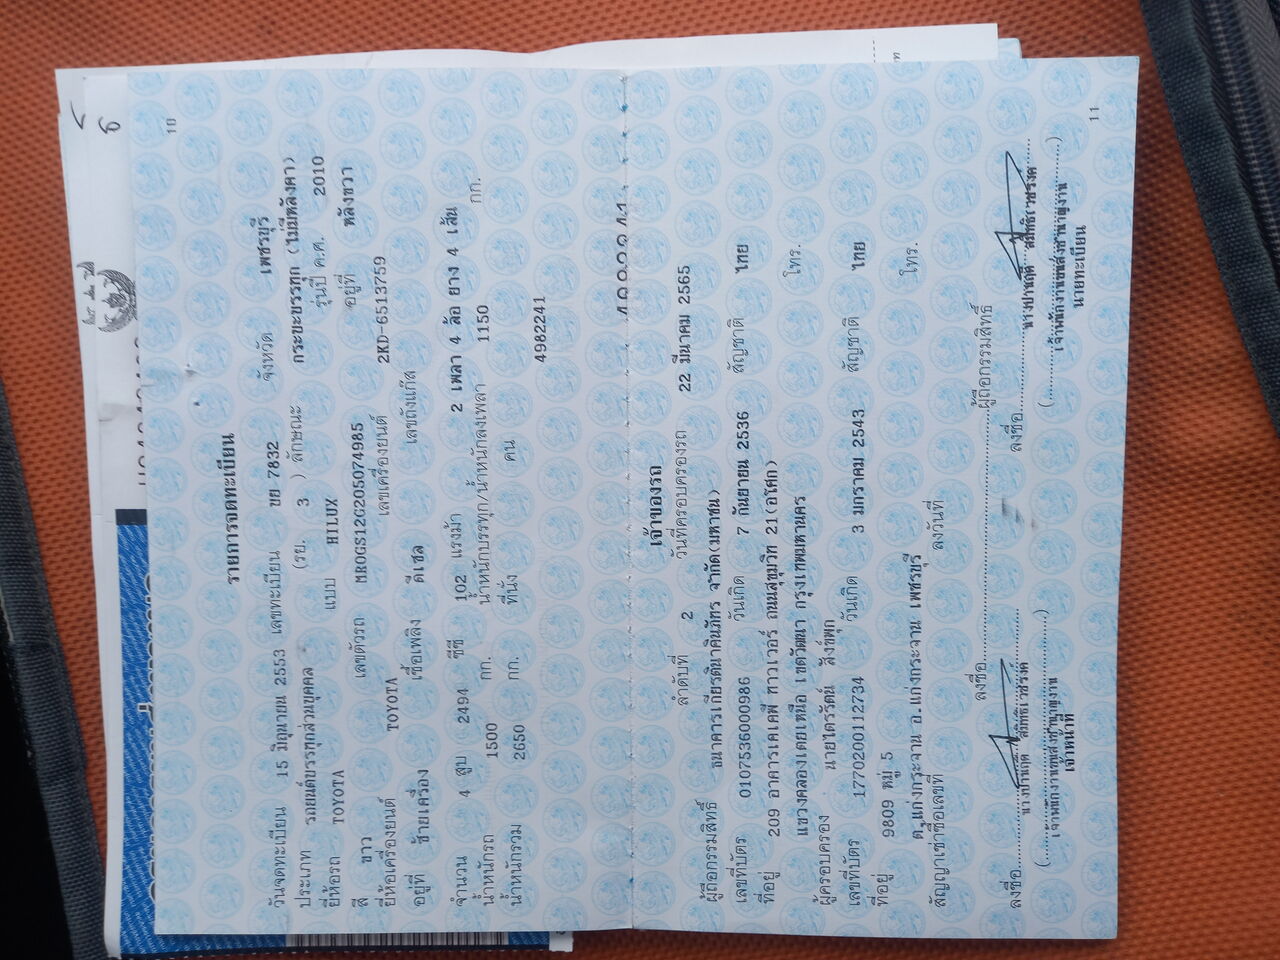 10
รายการจดทะเบียน
วันจดทะเบียน 15 มิถุนายน 2553 เลขทะเบียน ขย 7832 จังหวัด เพชรบุรี
ประเภท รถยนต์บรรทุกส่วนบุคคล (รย. 3 ) ลักษณะ กระบะบรรทุก (ไม่มีหลังคา)
ยี่ห้อรถ TOYOTA แบบ HILUX รุ่นปี ค.ศ. 2010
สี ขาว เลขตัวรถ MR0GS12G205074985 อยู่ที่ หลังขวา
ยี่ห้อเครื่องยนต์ TOYOTA เลขเครื่องยนต์ 2KD-6513759
อยู่ที่ ซ้ายเครื่อง เชื้อเพลิง ดีเซล เลขถังแก๊ส
จำนวน 4 สูบ 2494 ซีซี 102 แรงม้า 2 เพลา 4 ล้อ ยาง 4 เส้น
น้ำหนักรถ 1500 กก. น้ำหนักบรรทุก/น้ำหนักลงเพลา 1150 กก.
น้ำหนักรวม 2650 กก. ที่นั่ง คน
4982241
เจ้าของรถ
ลำดับที่ 2 วันที่ครอบครองรถ 22 มีนาคม 2565
ผู้ถือกรรมสิทธิ์ ธนาคารเกียรตินาคินภัทร จำกัด(มหาชน)
เลขที่บัตร 0107536000986 วันเกิด 7 กันยายน 2536 สัญชาติ ไทย
ที่อยู่ 209 อาคารเคเคพี ทาวเวอร์ ถนนสุขุมวิท 21(อโศก)
แขวงคลองเตยเหนือ เขตวัฒนา กรุงเทพมหานคร โทร.
ผู้ครอบครอง นายไตรรัตน์ สังข์พุก
เลขที่บัตร 1770200112734 วันเกิด 3 มกราคม 2543 สัญชาติ ไทย
ที่อยู่ 9809 หมู่ 5
ต.แก่งกระจาน อ.แก่งกระจาน เพชรบุรี โทร.
สัญญาเช่าซื้อเลขที่ ลงวันที่
ลงชื่อ ผู้ถือกรรมสิทธิ์
ลงชื่อ ลงชื่อ
เจ้าหน้าที่ นายทะเบียน
11